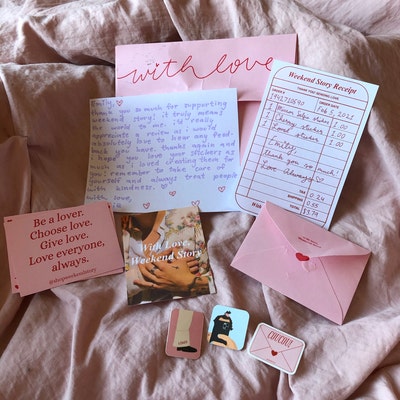 with love
Emily, ♡
thank you so much for supporting
weekend story! it truly means
the world to me. i'd really
appreciate a review as i would
absolutely love to hear any feed-
back you have. thanks again and
i hope you love your stickers as
much as i loved creating them for
you! remember to take care of
yourself and always treat people
with kindness. ♡
with love,
Weekend Story Receipt
THANK YOU SENDING LOVE.
ORDER #
ORDER DATE
Feb 5, 2021
sticker 1.00
sticker 1.00
sticker 1.00
Emily
thank you so much!
Love always
TAX 0.24
SHIPPING 0.55
TOTAL $3.79
Be a lover.
Choose love.
Give love.
Love everyone,
always.
@shopweekendstory
With Love,
Weekend Story
COUCOU!